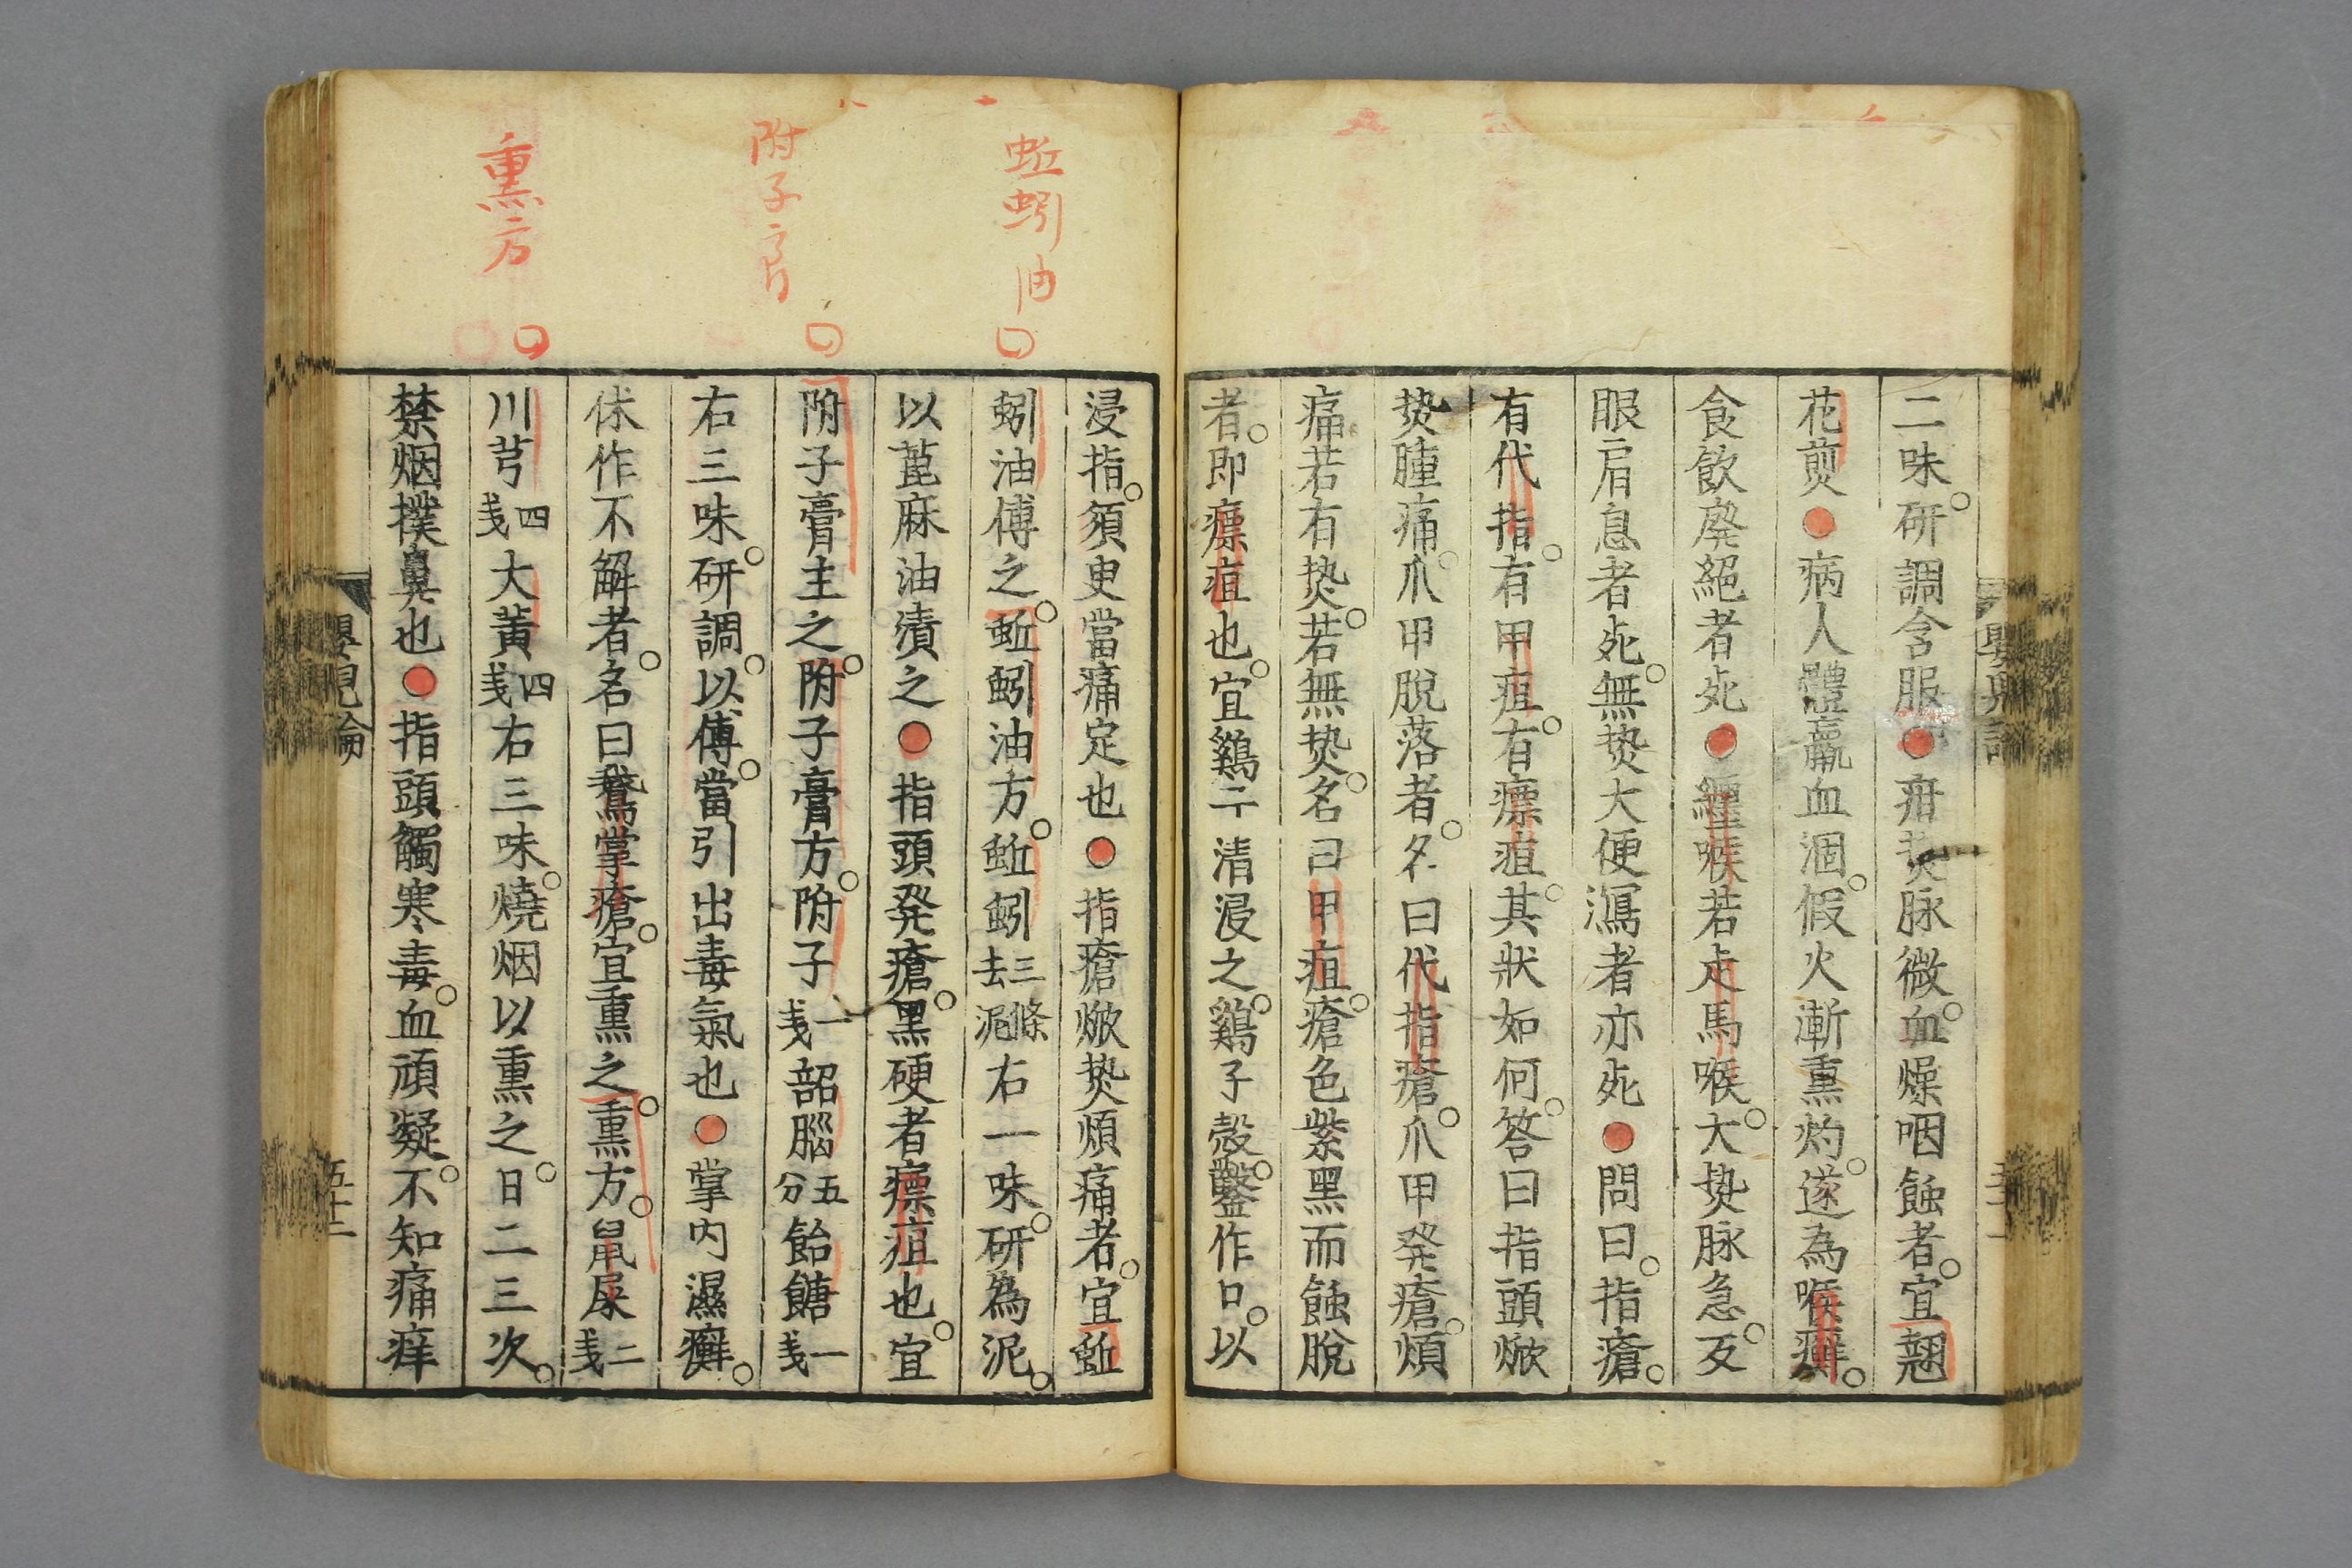 二味。研調含服●疳𤍠脉微。血燥咽蝕者。宜翹
花煎●病人體羸血涸。假火漸熏灼。遂為喉癬。
食飲廃絕者死●纏喉若走馬喉。大𤍠脉急。叐
眼肩息者死。無𤍠大便瀉者亦死●問曰。指瘡。
有代指。有甲疽。有瘭疽。其狀如何。答曰指頭焮
𤍠腫痛。爪甲脫落者。名曰代指瘡。爪甲発瘡。煩
痛若有𤍠。若無𤍠。名曰甲疽瘡。色紫黑而蝕脫
者。即瘭疽也。宜鷄子清浸之。鷄子殼。鑿作口。以
蚯蚓油
附子膏
熏方
浸指。須臾當痛定也●指瘡焮𤍠煩痛者。宜蚯
蚓油傅之。蚯蚓油方。蚯蚓三條去泥右一味。研為泥。
以蓖麻油漬之●指頭発瘡。黑硬者瘭疽也。宜
附子膏主之。附子膏方。附子一戔韶腦五分飴餹一戔
右三味。研調。以傅。當引出毒氣也●掌内濕癬。
休作不解者。名曰鵞掌瘡。宜熏之。熏方。鼠屎二戔
川芎四戔大黃四戔右三味。燒烟以熏之。日二三次。
禁烟撲鼻也●指頭觸寒毒。血頑凝。不知痛痒
五十二